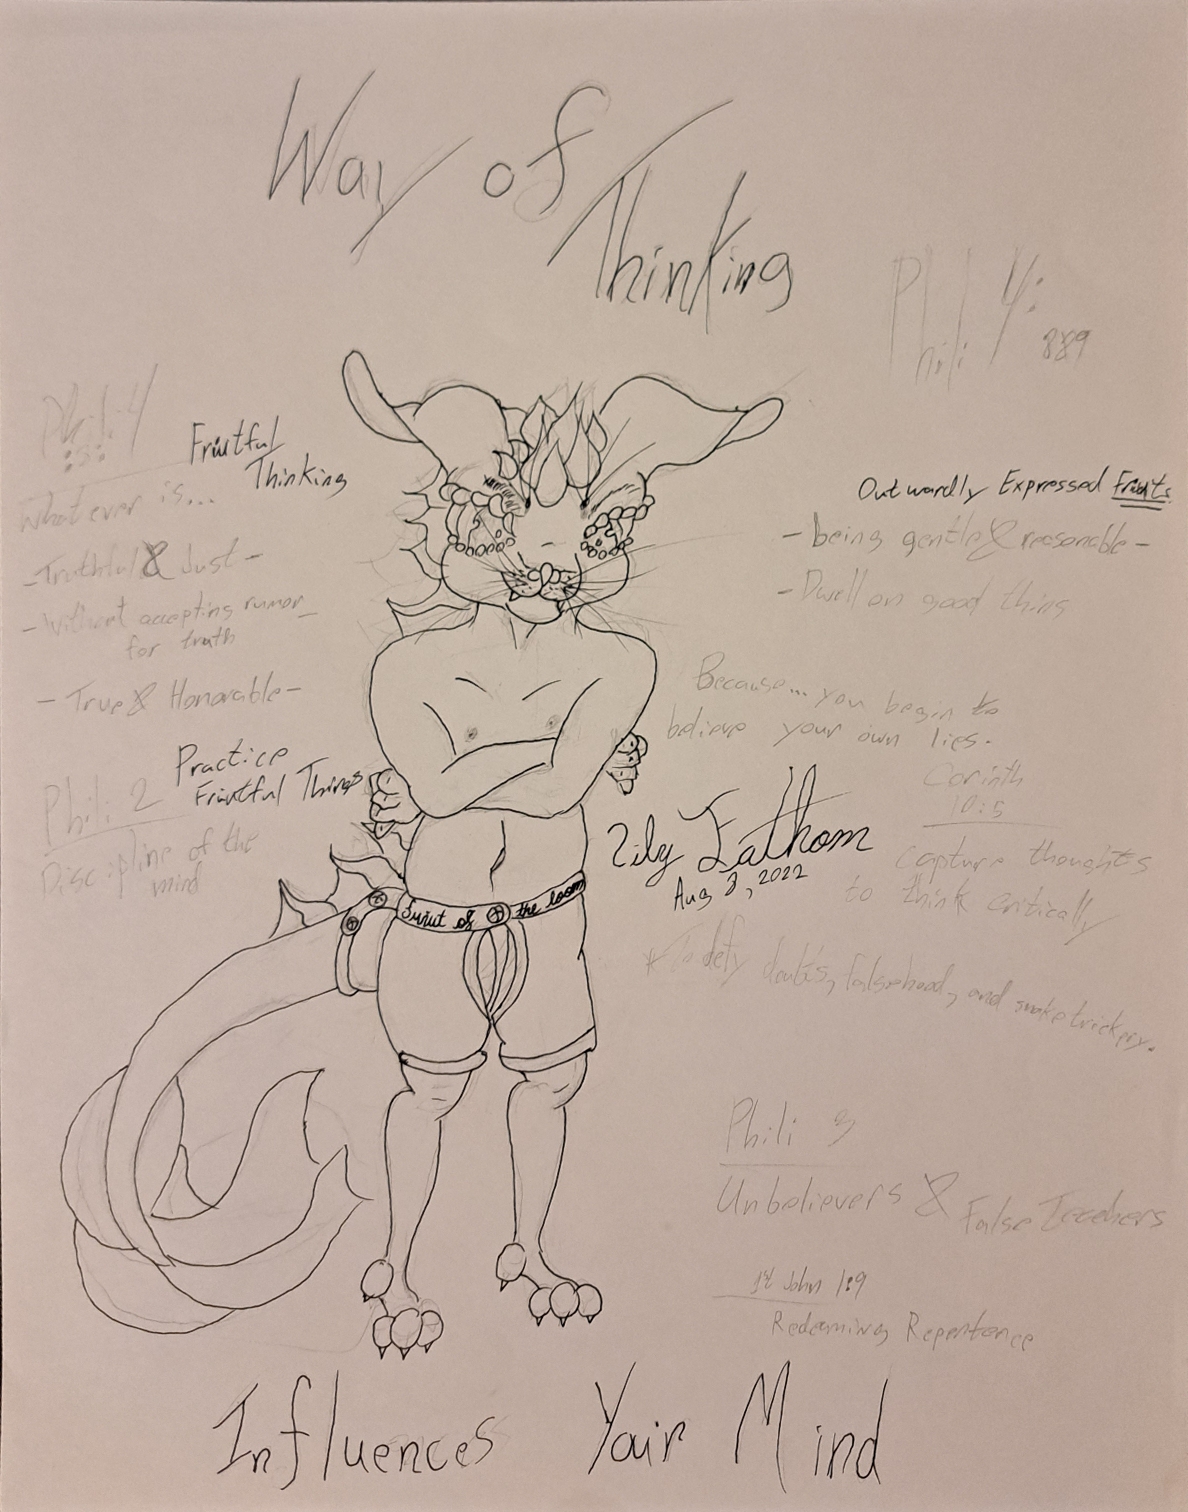 Way of
Thinking
Phili 4:
8&9
Phili 4
:8:
Fruitful
Thinking
Whatever is...
- Truthful & Just -
- Without accepting rumor -
for truth
- True & Honorable -
Practice
Fruitful Things
Phili 2
Discipline of the
mind
Outwardly Expressed Fruits
- being gentle & reasonable -
- Dwell on good thing
Because... you begin to
believe your own lies.
Corinth
10:5
capture thoughts
to think critically
Aug 3, 2022
Fruit of the loom
* To defy doubts, falsehood, and snake trickery.
Phili 3
Unbelievers & False Teachers
1st John 1:9
Redeeming Repentence
Influences Your Mind